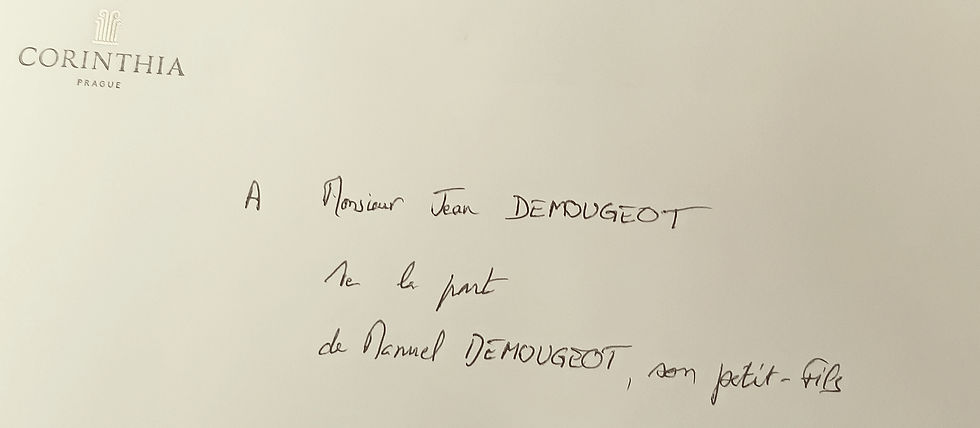 CORINTHIA
PRAGUE
A Monsieur Jean DEMOUGEOT
De la part
de Manuel DEMOUGEOT, son petit-fils